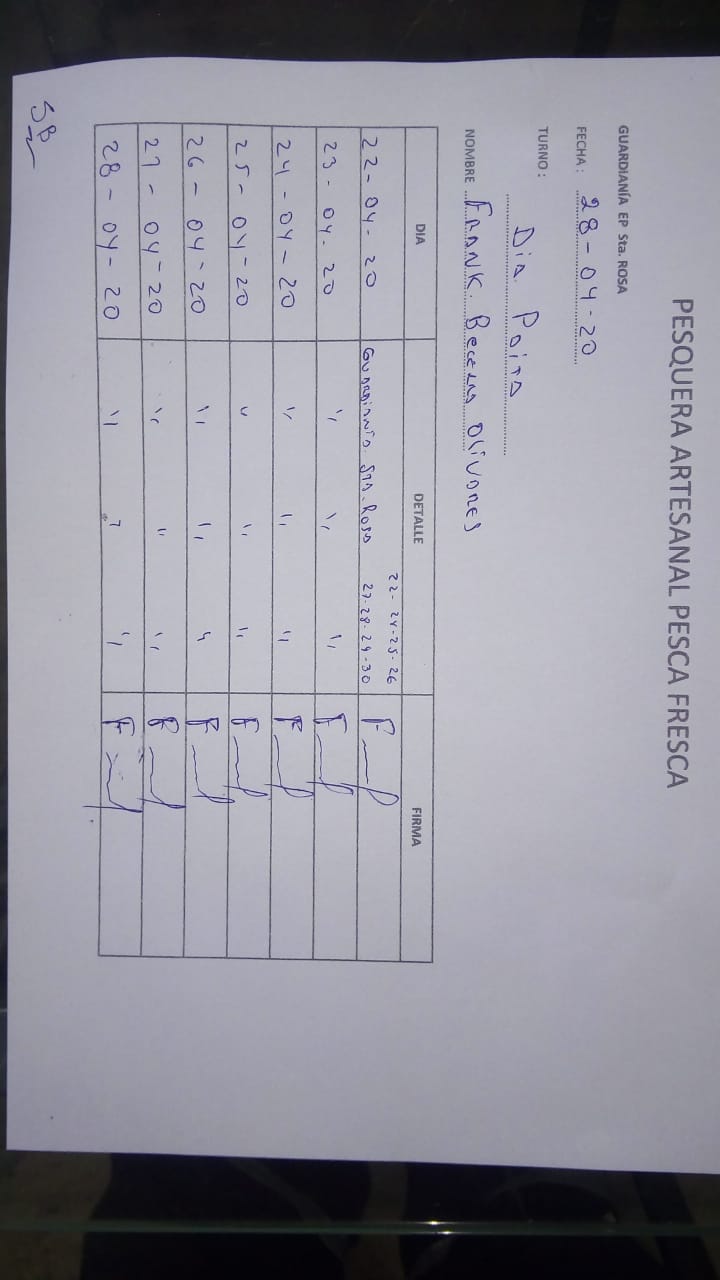 PESQUERA ARTESANAL PESCA FRESCA
GUARDIANÍA EP Sta. ROSA
FECHA: 28-04-20
TURNO: Dia Poita
NOMBRE FRANK. Becerra Olivares
DIA DETALLE FIRMA
22-24-25-26
22-04-20 Guardiania. Sta. Rosa 27-28-29-30
23-04-20 " " "
24-04-20 " " "
25-04-20 " " "
26-04-20 " " "
27-04-20 " " "
28-04-20 " " "
SB